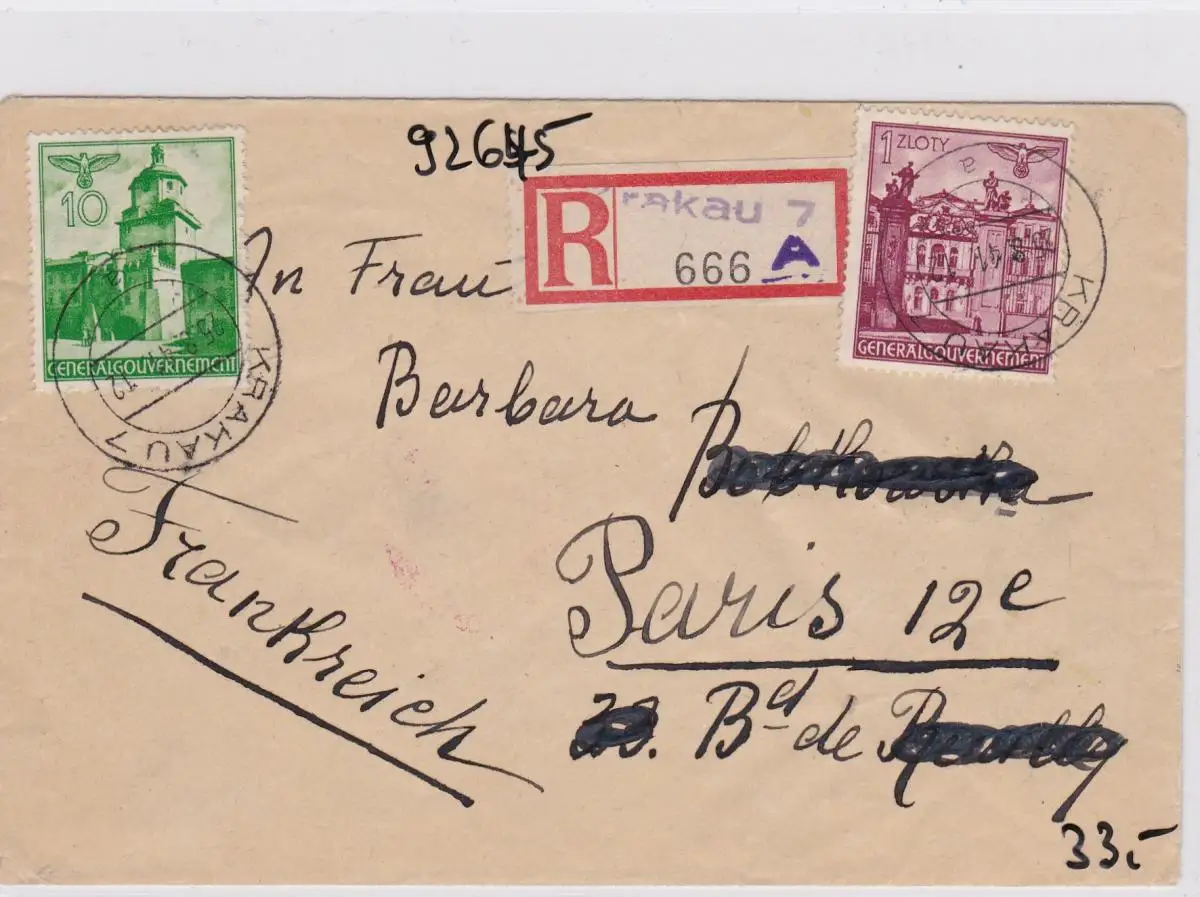 92645
10
GENERALGOUVERNEMENT
KRAKAU 7
12
R
Krakau 7
666 A
1 ZLOTY
GENERALGOUVERNEMENT
KRAKAU
An Frau
Barbara
Paris 12e
Bd de
Frankreich
33,-